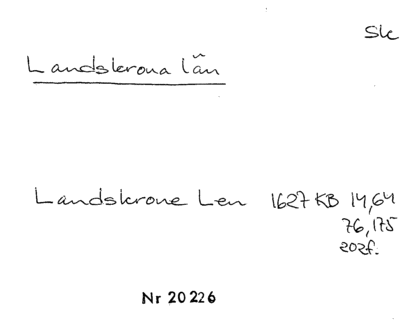 Sk
Landskrona län
Landskrone Len 1627 KB 14,64
76,175
202f.
Nr 20226